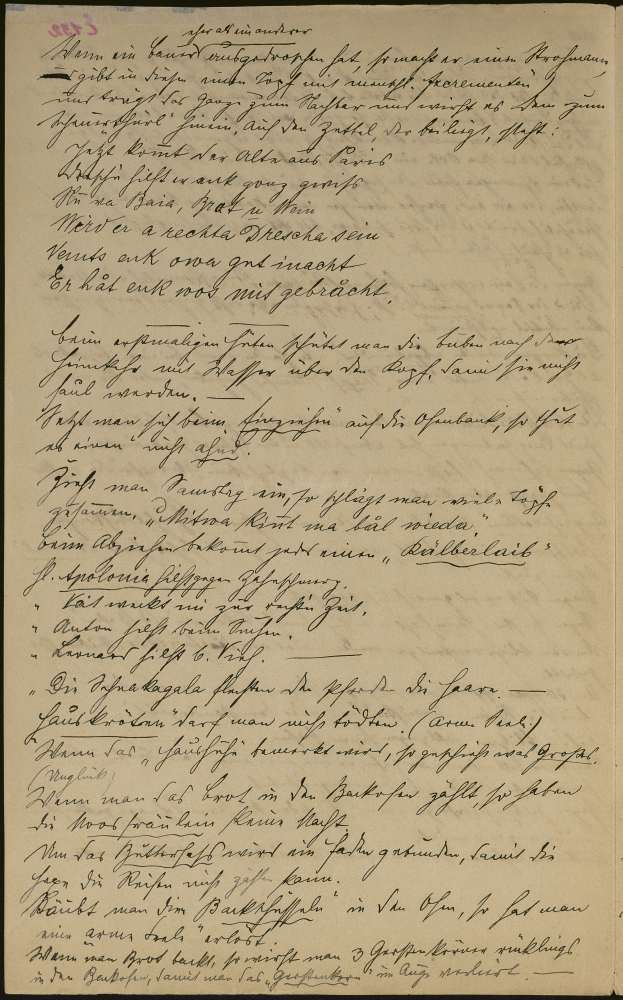 E 132
eher als ein anderer
Wenn ein Bauer ausgedroschen hat, so macht er einen Strohmann,
gibt in diesen einen Topf mit menschl. Excrementen
und trägt das Ganze zum Nachbar und wirft es dem zum
Scheuerthürl hinein, auf dem Zettel der beiliegt, steht:
Jetzt kommt der Alte aus Paris
Dreschn hilft er enk ganz gwiß
Baia, Brot u Wein
Wird er a rechta Drescha sein
enk owa gut inacht
Er håt enk wos mitgebråcht.
Beim erstmaligen Hüten schüttet man die Buben nach der
Heimkehr mit Wasser über den Kopf, damit sie nicht
faul werden. —
Setzt man sich beim „Einziehn“ auf die Ofenbank, so thut
es einen nicht ahnd.
Zieht man Samstag ein, so schlägt man viele Töpfe
zusammen. „Mitwa kimt ma bål wieda“.
Beim Abziehen bekommt jeder einen „Kälberlaib“
Hl. Apolonia hilft gegen Zahnschmerz.
„ Vät weckt mi zur rechtn Zeit.
„ Anton hilft beim Suchen.
„ Leonard hilft b. Vieh. —
„Die Schrakagala flechten den Pferden die Haare. —
„Hauskröten“ darf man nicht tödten. (Arme Seele)
Wenn das „Haushühn bemerkt wird, so geschieht was Großes.
(Unglück)
Wenn man das Brot in den Backofen zählt, so haben
die Moosfräulein keine Macht.
Um das Butterfass wird ein Faden gebunden, damit die
Hexe die Reifen nicht zählen kann.
Räubt man dim Backschüsseln in den Ofen, so hat man
eine arme Seele erlöst.
Wenn man Brot backt, so wirft man 3 Gerstenkörner rücklings
in den Backofen, damit man das „Gerstenkorn“ im Auge verliert. —